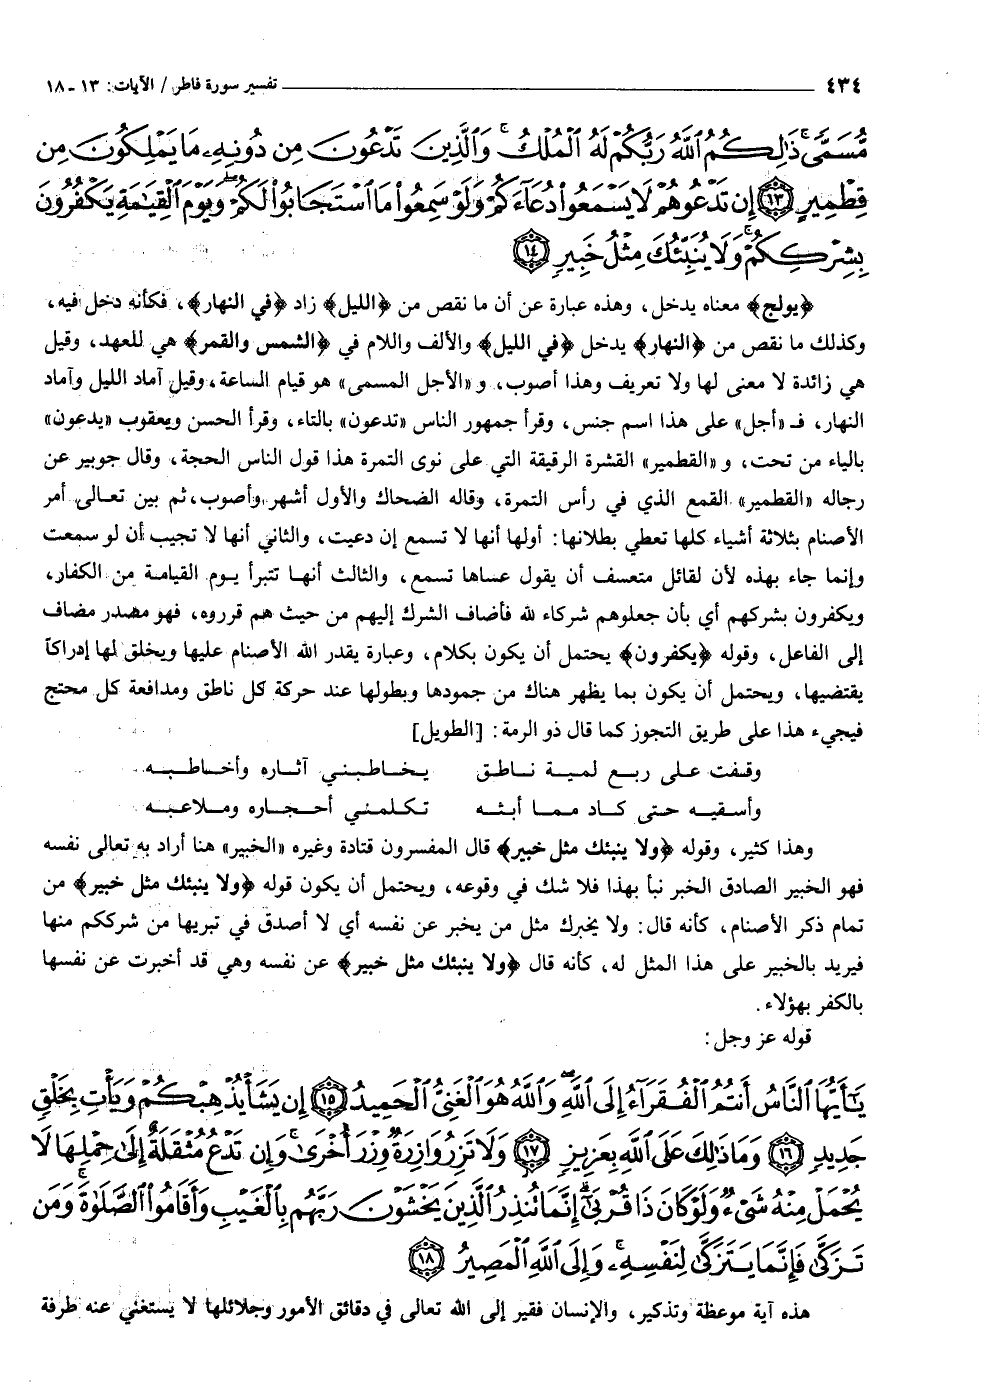 ٤٣٤ تفسير سورة فاطر / الآيات: ١٣ - ١٨
مُّسَمًّى ذَٰلِكُمُ ٱللَّهُ رَبُّكُمْ لَهُ ٱلْمُلْكُ وَٱلَّذِينَ تَدْعُونَ مِن دُونِهِۦ مَا يَمْلِكُونَ مِن
قِطْمِيرٍ ﴿١٣﴾ إِن تَدْعُوهُمْ لَا يَسْمَعُوا۟ دُعَآءَكُمْ وَلَوْ سَمِعُوا۟ مَا ٱسْتَجَابُوا۟ لَكُمْ وَيَوْمَ ٱلْقِيَٰمَةِ يَكْفُرُونَ
بِشِرْكِكُمْ وَلَا يُنَبِّئُكَ مِثْلُ خَبِيرٍ ﴿١٤﴾
﴿يولج﴾ معناه يدخل، وهذه عبارة عن أن ما نقص من ﴿الليل﴾ زاد ﴿في النهار﴾، فكأنه دخل فيه،
وكذلك ما نقص من ﴿النهار﴾ يدخل ﴿في الليل﴾ والألف واللام في ﴿الشمس والقمر﴾ هي للعهد، وقيل
هي زائدة لا معنى لها ولا تعريف وهذا أصوب، و «الأجل المسمى» هو قيام الساعة، وقيل آماد الليل وآماد
النهار، فـ «أجل» على هذا اسم جنس، وقرأ جمهور الناس «تدعون» بالتاء، وقرأ الحسن ويعقوب «يدعون»
بالياء من تحت، و «القطمير» القشرة الرقيقة التي على نوى التمرة هذا قول الناس الحجة، وقال جويبر عن
رجاله «القطمير» القمع الذي في رأس التمرة، وقاله الضحاك والأول أشهر وأصوب، ثم بين تعالى أمر
الأصنام بثلاثة أشياء كلها تعطي بطلانها: أولها أنها لا تسمع إن دعيت، والثاني أنها لا تجيب أن لو سمعت
وإنما جاء بهذه لأن لقائل متعسف أن يقول عساها تسمع، والثالث أنها تتبرأ يوم القيامة من الكفار،
ويكفرون بشركهم أي بأن جعلوهم شركاء لله فأضاف الشرك إليهم من حيث هم قرروه، فهو مصدر مضاف
إلى الفاعل، وقوله ﴿يكفرون﴾ يحتمل أن يكون بكلام، وعبارة يقدر الله الأصنام عليها ويخلق لها إدراكاً
يقتضيها، ويحتمل أن يكون بما يظهر هناك من جمودها وبطولها عند حركة كل ناطق ومدافعة كل محتج
فيجيء هذا على طريق التجوز كما قال ذو الرمة: [الطويل]
وقفت على ربع لمية ناطق يخاطبني آثاره وأخاطبه
وأسقيه حتى كاد مما أبثه تكلمني أحجاره وملاعبه
وهذا كثير، وقوله ﴿ولا ينبئك مثل خبير﴾ قال المفسرون قتادة وغيره «الخبير» هنا أراد به تعالى نفسه
فهو الخبير الصادق الخبر نبأ بهذا فلا شك في وقوعه، ويحتمل أن يكون قوله ﴿ولا ينبئك مثل خبير﴾ من
تمام ذكر الأصنام، كأنه قال: ولا يخبرك مثل من يخبر عن نفسه أي لا أصدق في تبريها من شرككم منها
فيريد بالخبير على هذا المثل له، كأنه قال ﴿ولا ينبئك مثل خبير﴾ عن نفسه وهي قد أخبرت عن نفسها
بالكفر بهؤلاء.
قوله عز وجل:
يَٰٓأَيُّهَا ٱلنَّاسُ أَنتُمُ ٱلْفُقَرَآءُ إِلَى ٱللَّهِ وَٱللَّهُ هُوَ ٱلْغَنِىُّ ٱلْحَمِيدُ ﴿١٥﴾ إِن يَشَأْ يُذْهِبْكُمْ وَيَأْتِ بِخَلْقٍ
جَدِيدٍ ﴿١٦﴾ وَمَا ذَٰلِكَ عَلَى ٱللَّهِ بِعَزِيزٍ ﴿١٧﴾ وَلَا تَزِرُ وَازِرَةٌ وِزْرَ أُخْرَىٰ وَإِن تَدْعُ مُثْقَلَةٌ إِلَىٰ حِمْلِهَا لَا
يُحْمَلْ مِنْهُ شَىْءٌ وَلَوْ كَانَ ذَا قُرْبَىٰٓ إِنَّمَا تُنذِرُ ٱلَّذِينَ يَخْشَوْنَ رَبَّهُم بِٱلْغَيْبِ وَأَقَامُوا۟ ٱلصَّلَوٰةَ وَمَن
تَزَكَّىٰ فَإِنَّمَا يَتَزَكَّىٰ لِنَفْسِهِۦ وَإِلَى ٱللَّهِ ٱلْمَصِيرُ ﴿١٨﴾
هذه آية موعظة وتذكير، والإنسان فقير إلى الله تعالى في دقائق الأمور وجلائلها لا يستغني عنه طرفة